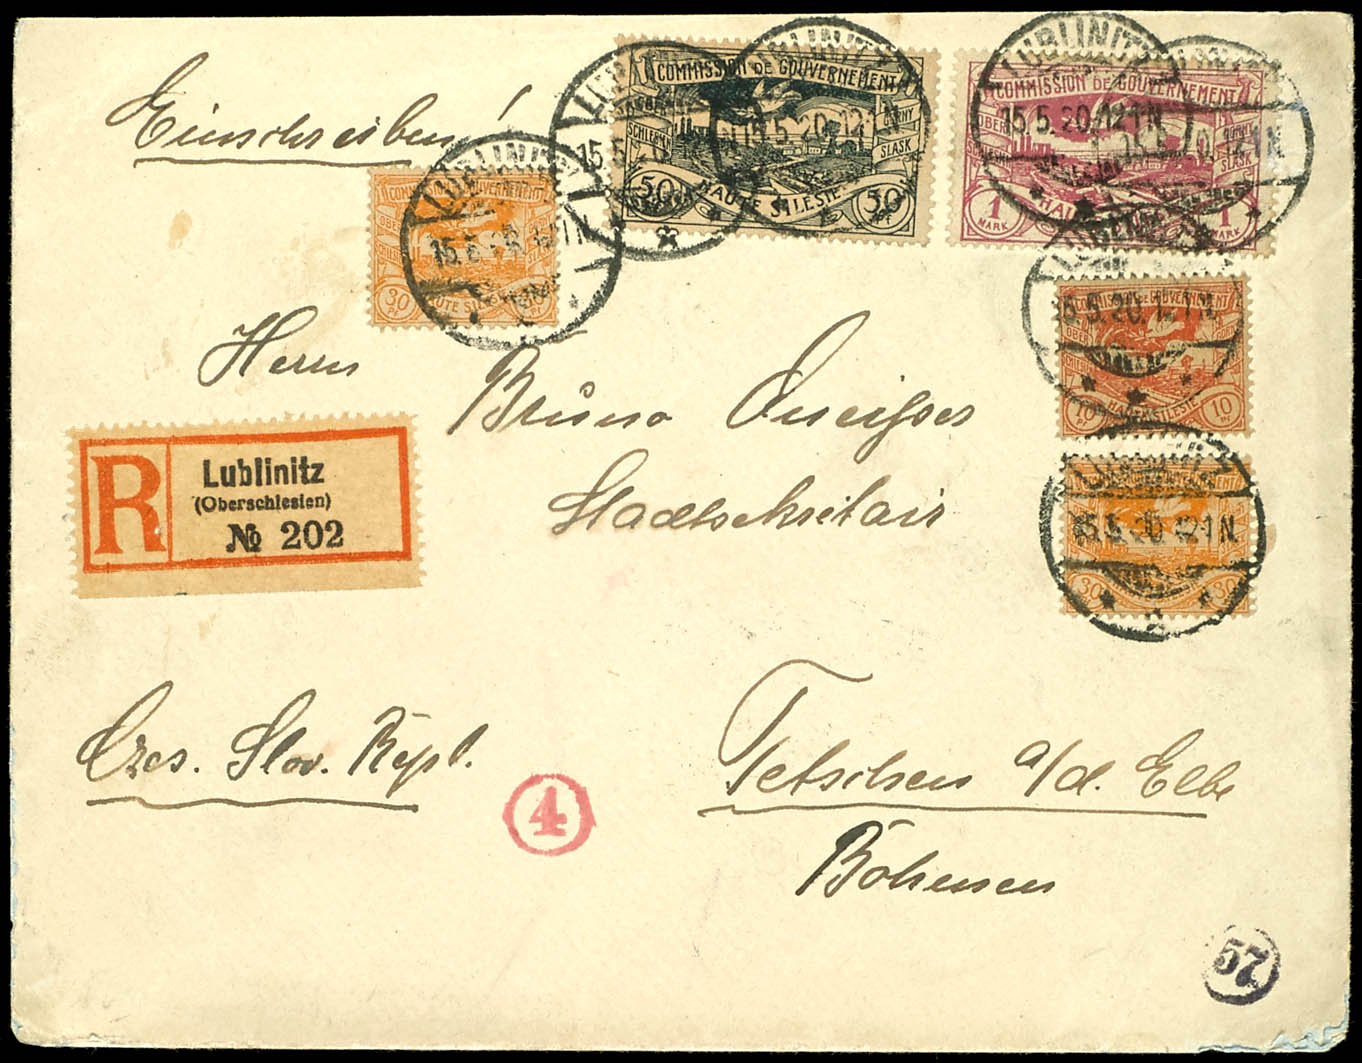 Einschreiben!
COMMISSION DE GOUVERNEMENT
OBER
30 Pf
HAUTE SILESIE
COMMISSION DE GOUVERNEMENT
OBER SCHLESIEN
GORNY SLASK
50
HAUTE SILESIE
50 Pf
COMMISSION DE GOUVERNEMENT
OBER
GORNY SLASK
1 MARK
1 MARK
LUBLINITZ
15.5.20.12-1N
COMMISSION DE GOUVERNEMENT
OBER
10 Pf
HAUTE SILESIE
10 Pf
LUBLINITZ
15.5.20.12-1N
30
30
Herrn
Bruno
Stadtsekretair
R
Lublinitz
(Oberschlesien)
№ 202
Czes. Slov. Repl.
Tetschen a/d. Elbe
Böhmen
4
57